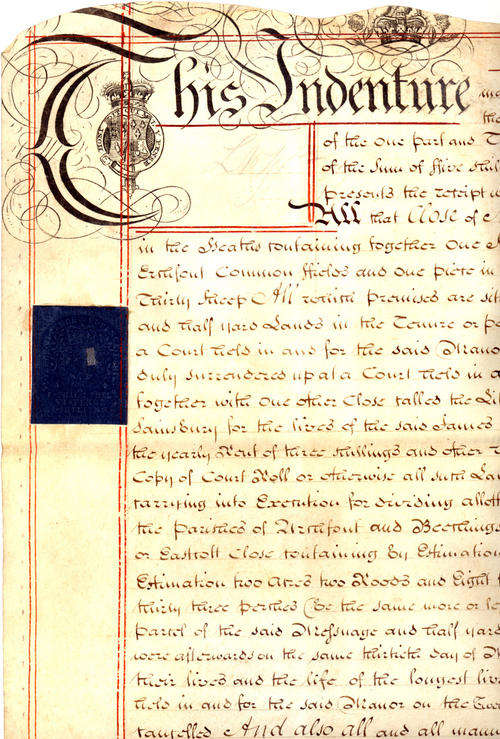 This Indenture
of the One Part and
of the Sum of ffive
Presents the receipt
All that Close of
in the Heaths containing together One
Erchfont Common ffields and One piece in
Thirty Sheep All which premises are
and half yard Lands in the Tenure or
a Court held in and for the said Manor
duly surrendered up at a Court held in
together with One other Close called the
Sainsbury for the lives of the said James
the yearly Rent of three shillings and other
Copy of Court Roll or otherwise all such
carrying into Execution for dividing
the Parishes of Urchfont and
or Eastcott Close containing by Estimation
Estimation two Acres two Roods and Eight
thirty three perches (be the same more or
Parcel of the said Messuage and half yard
were afterwards on the same thirtieth day of
their lives and the life of the longest
held in and for the said Manor on the
cancelled And also all and all